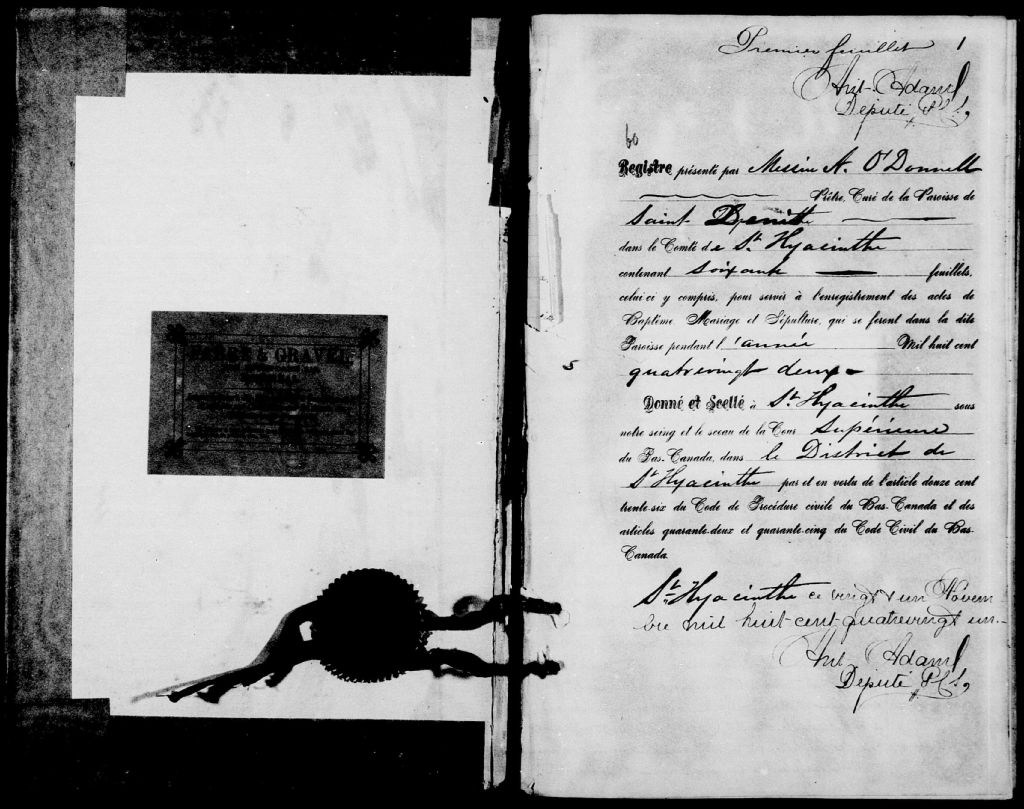 & GRAVEL
Premier feuillet 1
Ant. Adam
Député P.C.S,
60
Registre présenté par Messire A. O'Donnell
Prêtre, Curé de la Paroisse de
Saint Denis
dans le Comté de St. Hyacinthe
contenant soixante feuillets,
celui-ci y compris, pour servir à l'enregistrement des actes de
Baptême, Mariage et Sépulture, qui se feront dans la dite
Paroisse pendant l'année Mil huit cent
quatrevingt deux
Donné et Scellé à St. Hyacinthe sous
notre seing et le sceau de la Cour Supérieure
du Bas-Canada, dans le District de
St Hyacinthe par et en vertu de l'article douze cent
trente-six du Code de Procédure civile du Bas-Canada et des
articles quarante-deux et quarante-cinq du Code Civil du Bas-
Canada.
St. Hyacinthe ce vingt & un Novem
bre mil huit cent quatrevingt un.
Ant. Adam
Député P.C.S,